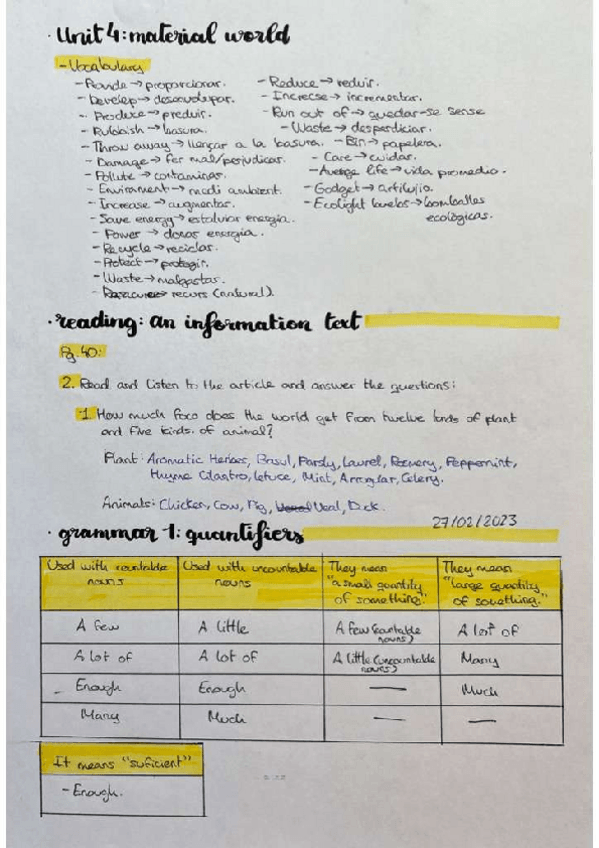 · Unit 4: material world
- Vocabulary
- Provide → proporcionar.
- Develop → desenvolupar.
- Produce → produir.
- Rubbish → basura.
- Throw away → llençar a la basura.
- Damage → fer mal/perjudicar.
- Pollute → contaminar.
- Enviroment → medi ambient.
- Increase → augmentar.
- Save energy → estalviar energia.
- Power → donar energia.
- Recycle → reciclar.
- Protect → protegir.
- Waste → malgastar.
- → recurs (natural).
- Reduce → reduir.
- Increcse → incrementar.
- Run out of → quedar-se sense
- Waste → desperdiciar.
- Bin → papelera.
- Care → cuidar.
- Average life → vida promedio.
- Gadget → artilujio.
- Ecolight → bombolles
ecològicas.
· reading: an information text
Pg. 40:
2. Read and Listen to the article and answer the questions:
1 How much does the world get from twelve kinds of plant
and five kinds of animal?
Plant: Aromatic Herbes, Parsly, Laurel, Peppermint,
Mint, Celery.
Animals: Chicken, Cow, Pig, Veal, Duck.
27/02/2023
· grammar 1: quantifiers
Used with countable nouns
Used with uncountable nouns
They mean "a small quantity of something."
They mean "large quantity of something."
A few
A little
A few (countable nouns)
A lot of
A lot of
A lot of
A little (uncountable nouns)
Many
- Enough
Enough
—
Much
Many
Much
—
—
It means "suficient"
- Enough.